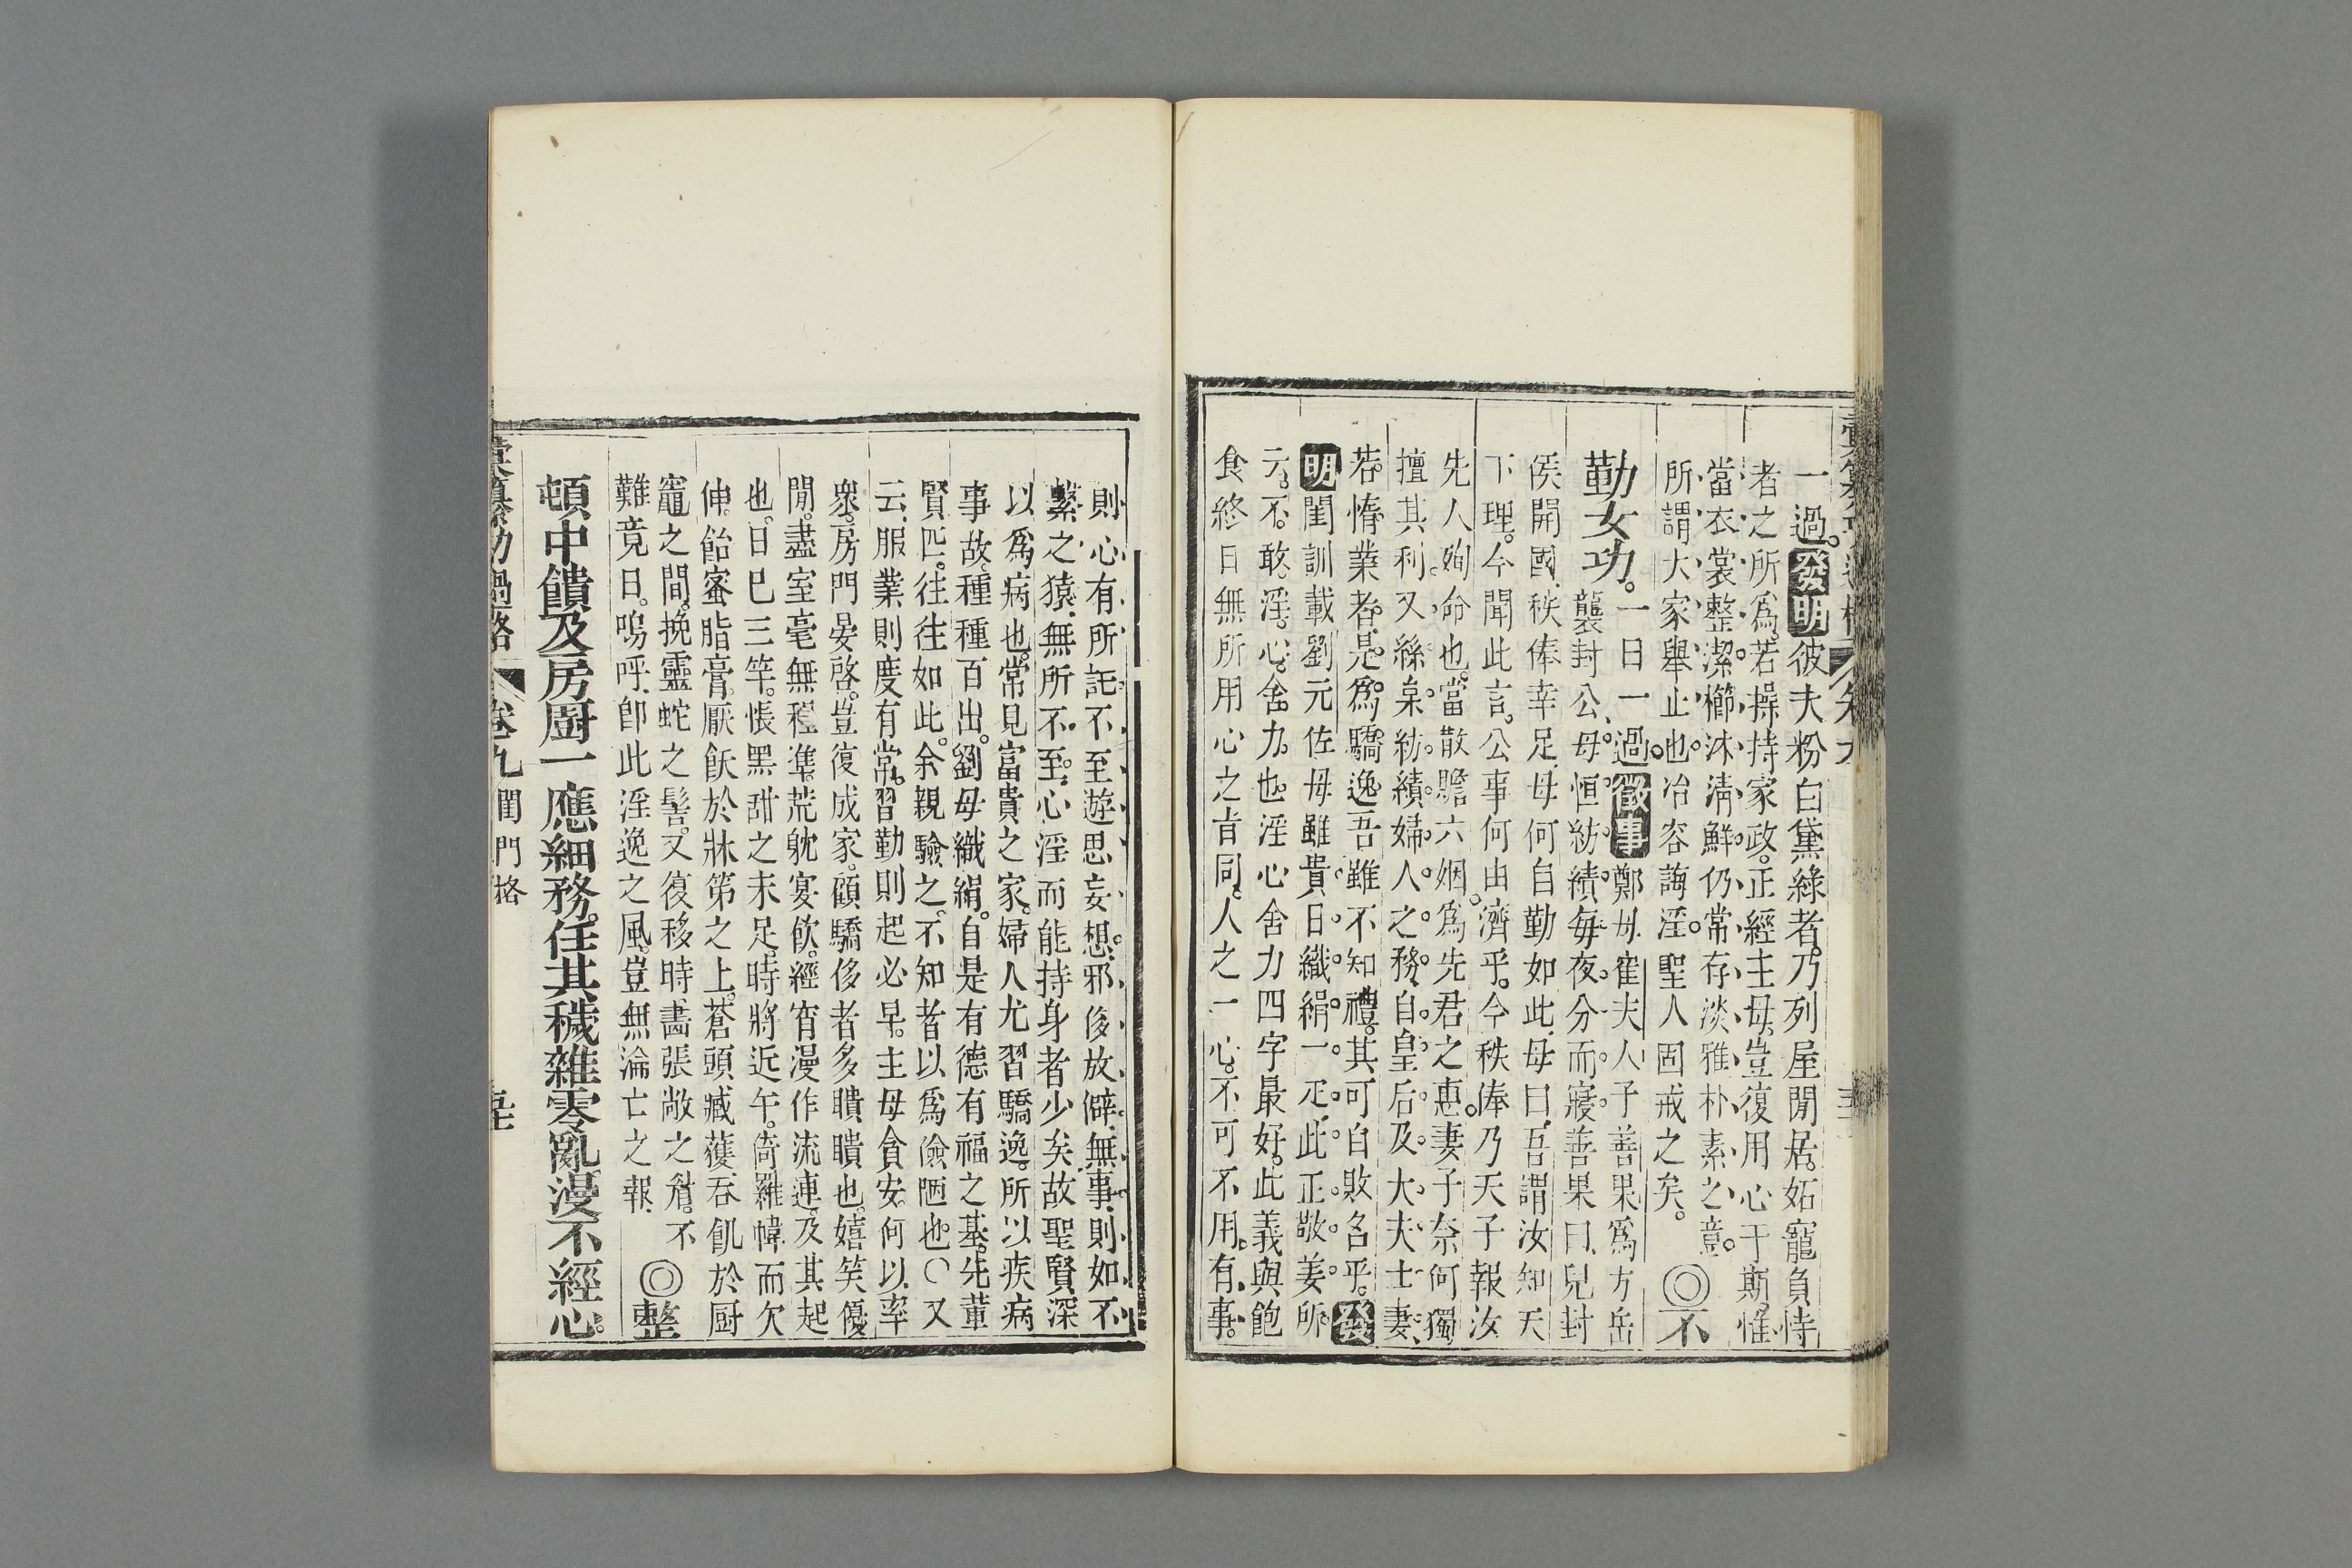 一過。發明彼夫粉白黛綠者。乃列屋閒居。妬寵負恃
者之所爲。若操持家政。正經主母。豈復用心于斯。惟
當衣裳整潔。櫛沐淸鮮。仍常存淡雅朴素之意。
所謂大家舉止也。冶容誨淫。聖人固戒之矣。◎不
勤女功。一日一過。徵事鄭母崔夫人子善果爲方岳
襲封公。母恒紡績。每夜分而寢。善果曰。兒封
侯開國。秩俸幸足。母何自勤如此。母曰。吾謂汝知天
下理。今聞此言。公事何由濟乎。今秩俸乃天子報汝
先人殉命也。當散贍六姻。爲先君之惠。妻子奈何獨
擅其利。又絲枲紡績。婦人之務。自皇后及大夫士妻。
若惰業者。是爲驕逸。吾雖不知禮。其可自敗名乎。發
明閨訓載劉元佐母雖貴。日織絹一疋。此正敬姜所
云。不敢淫心。舍力也。淫心舍力四字最好。此義與飽
食終日無所用心之旨同。人之一心。不可不用。有事。
則心有所託。不至遊思妄想。邪侈放僻。無事。則如不
繫之猿。無所不至。心淫而能持身者少矣。故聖賢深
以爲病也。常見富貴之家。婦人尤習驕逸。所以疾病
事故。種種百出。劉母織絹。自是有德有福之基。先輩
賢匹。往往如此。余親驗之。不知者以爲儉陋也。〇又
云。服業則度有常。習勤則起必早。主母貪安。何以率
衆。房門晏啓。豈復成家。顧驕侈者多聵聵也。嬉笑優
閒。盡室毫無程準。荒躭宴飲。經宵漫作流連。及其起
也。日巳三竿。悵黑甜之未足。時將近午。倚羅幃而欠
伸。飴蜜脂膏。厭飫於牀笫之上。蒼頭臧獲。吞飢於厨
竈之間。挽靈蛇之髻。又復移時。畵張敞之眉。不
難竟日。嗚呼。卽此淫逸之風。豈無淪亡之報。◎整
頓中饋及房厨一應細務。任其穢雜零亂。漫不經心。
彙纂功過格 卷九 閨門格